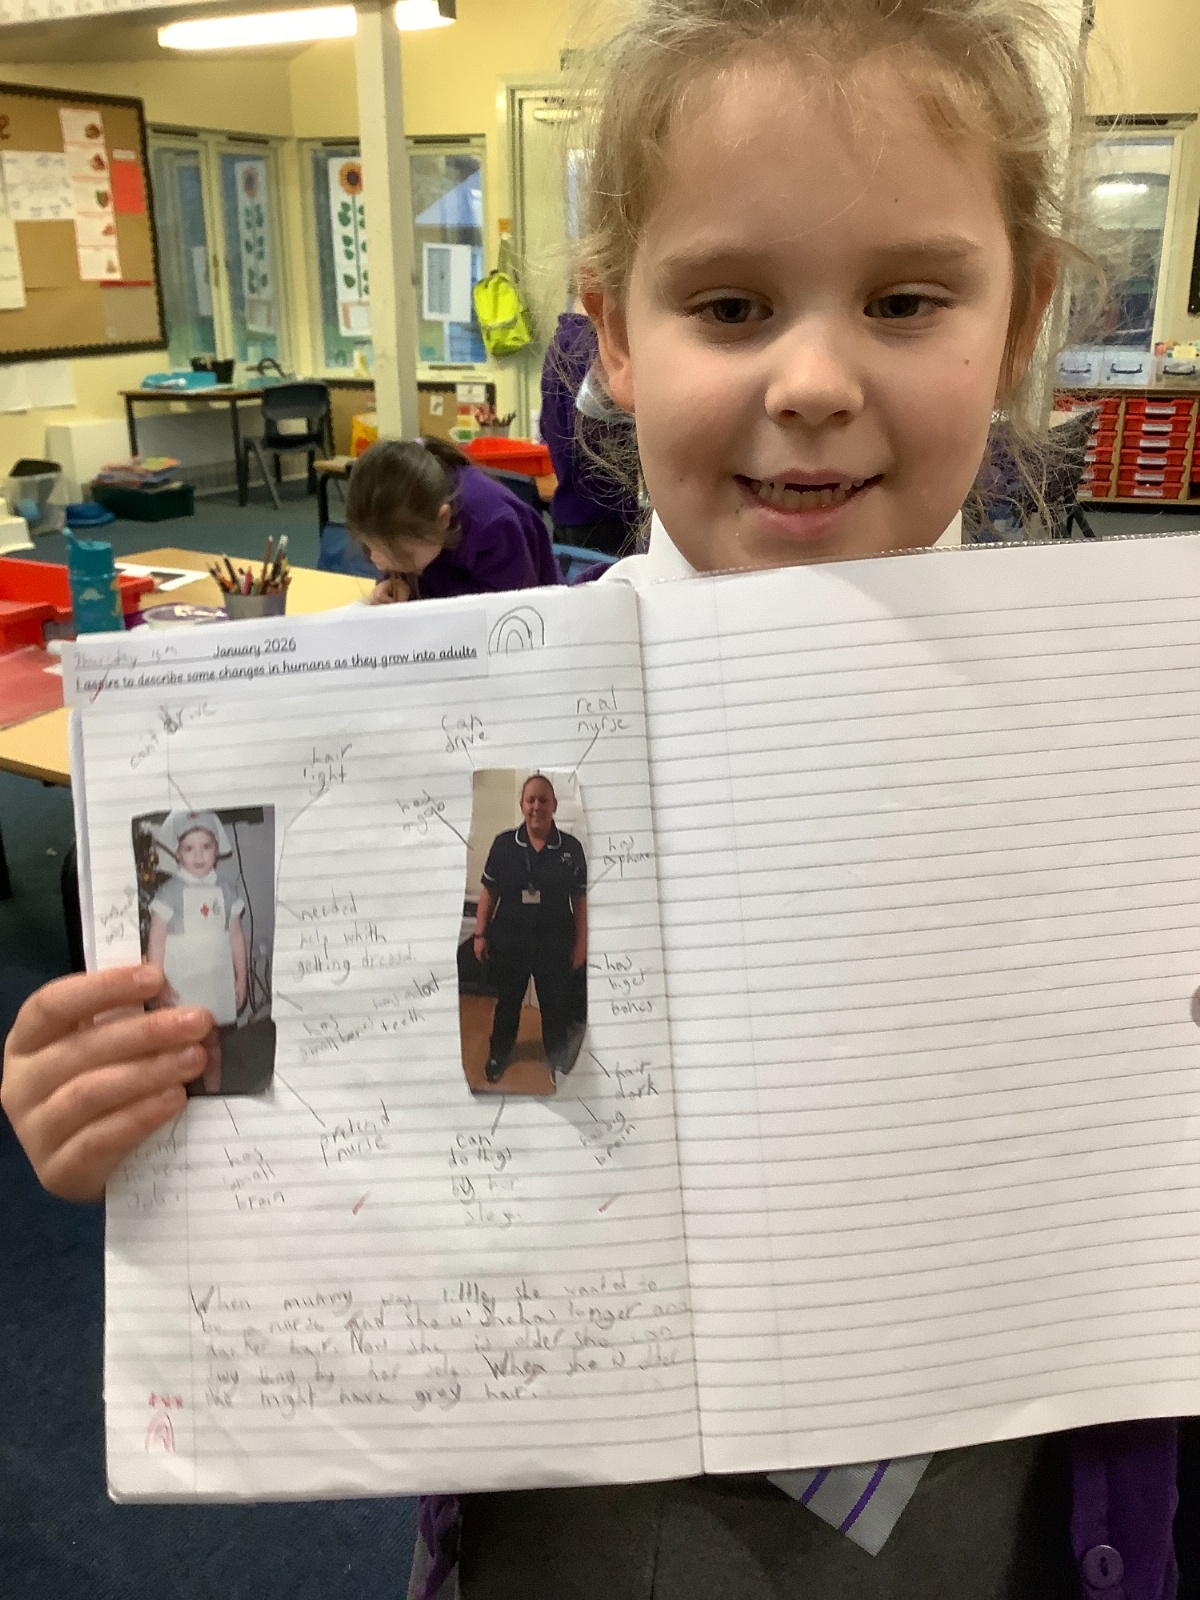 Thursday 15th January 2026
I aspire to describe some changes in humans as they grow into adults
can't drive
hair
light
needed
help whith
getting dressd.
has
small bones
teeth
pretend
nurse
has
small
brain
can
drive
real
nurse
has
a job
has
a phone
has
biget
bones
hair
dark
has big
brain
can
do thigs
by her
When mummy was little, she wanted to
be a nurse and she is longer and
darker hair. Now she is older she can
thing by her When she is
she might have grey hair.